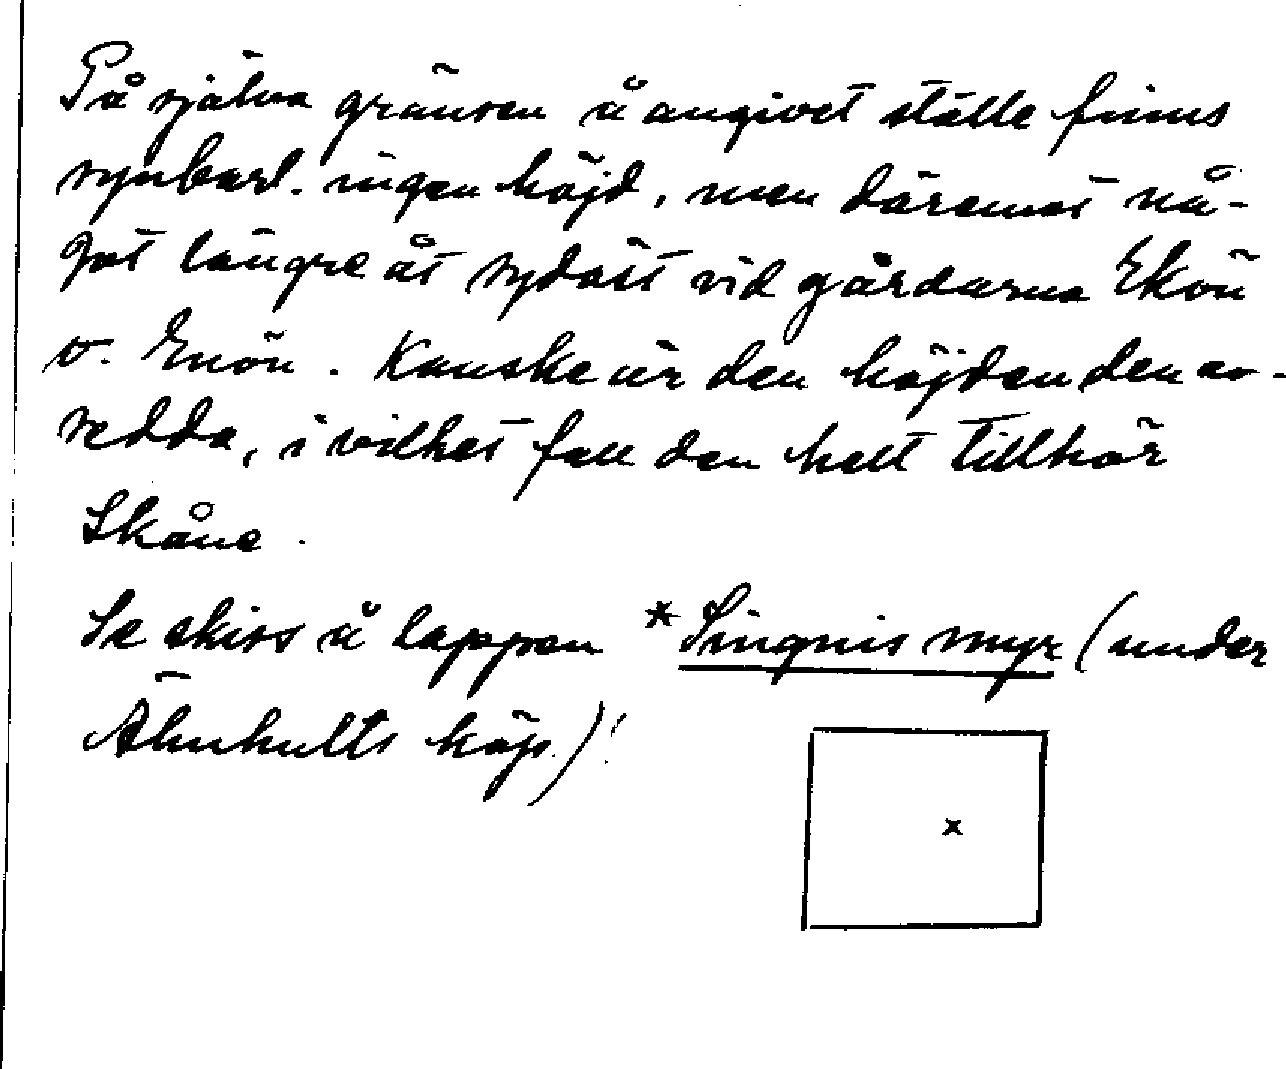 På själva gränsen å angivet ställe finns
synbarl. ingen höjd, men däremot nå-
got längre åt sydost vid gårdarna Ekön
o. Enön. Kanske är den höjden den av-
sedda, i vilket fall den helt tillhör
Skåne.
Se skiss å lappen *Singnis myr (under
Älmhults köp.)!
x